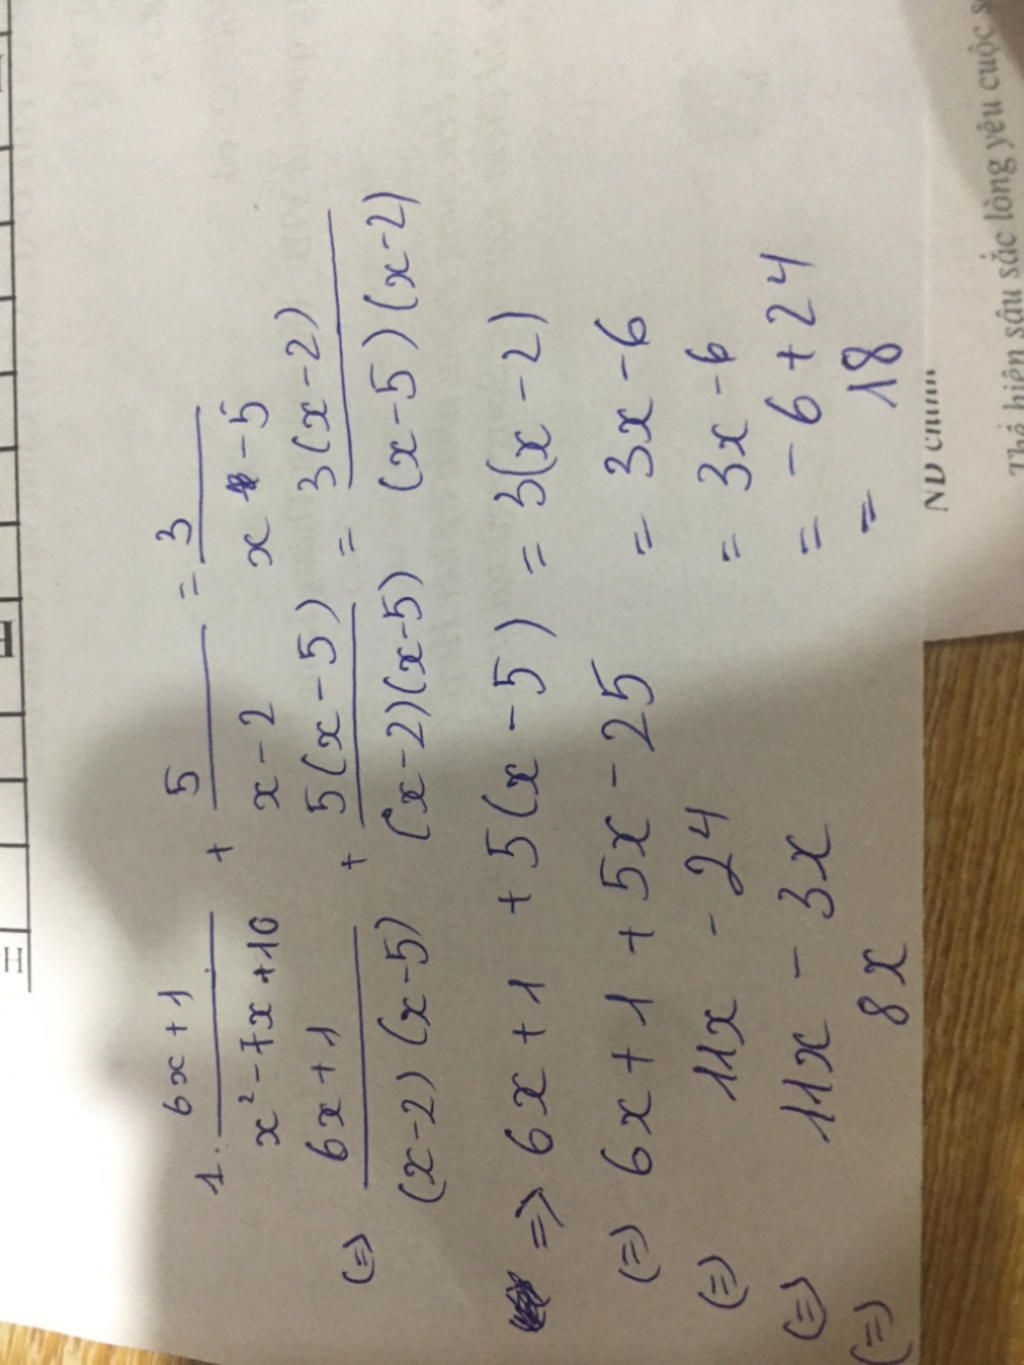 1. (6x + 1)/(x² - 7x + 10) + 5/(x - 2) = 3/(x - 5)
(=) (6x + 1)/((x - 2)(x - 5)) + 5(x - 5)/((x - 2)(x - 5)) = 3(x - 2)/((x - 5)(x - 2))
=> 6x + 1 + 5(x - 5) = 3(x - 2)
(=) 6x + 1 + 5x - 25 = 3x - 6
(=) 11x - 24 = 3x - 6
(=) 11x - 3x = - 6 + 24
(=) 8x = 18
Thể hiện sâu sắc lòng yêu cuộc
H